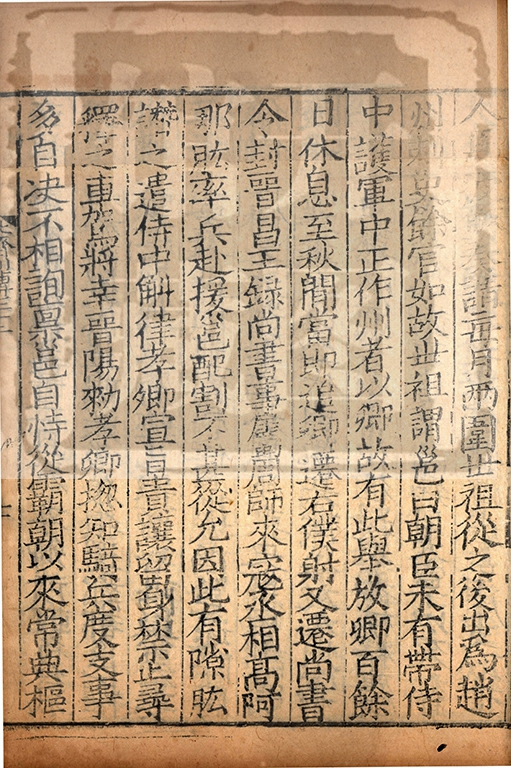 人奏請每月兩圍世祖從之後出為趙
州刺史餘官如故世祖謂邕曰朝臣未有帶侍
中護軍中正作州者以卿故有此舉放卿百餘
日休息至秋間當即追卿遷右僕射又遷尚書
令封晉昌王録尚書事屬周師來寇丞相髙阿
那肱率兵赴援邕配割不甚從允因此有隙肱
譖之遣侍中斛律孝卿宣旨責讓留身禁止尋
釋之車駕將幸晉陽勑孝卿揔知騎兵度支事
多自决不相詢禀邕自恃從霸朝以來常典樞